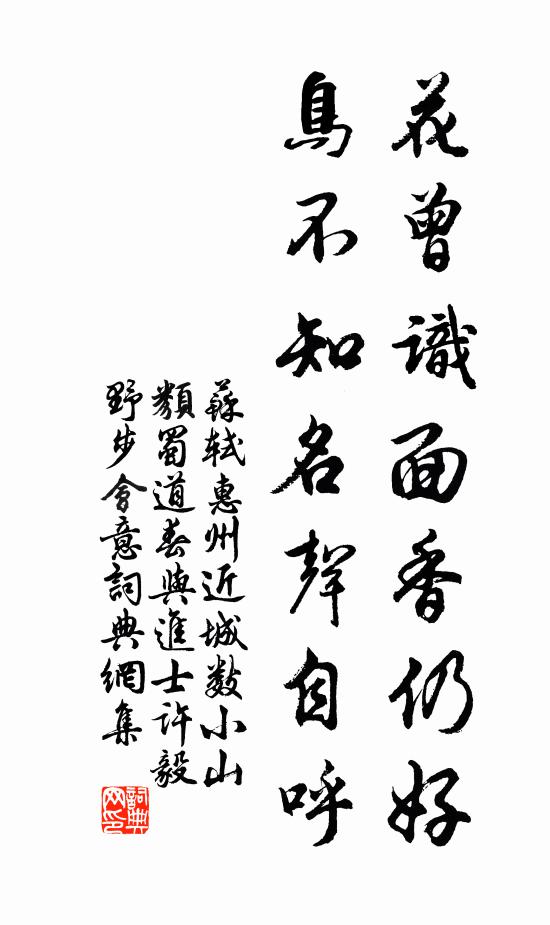 花曾識面香仍好
鳥不知名聲自呼
蘇軾惠州近城數小山
類蜀道春與進士許毅
野步會意詞典網集
詞典
网印